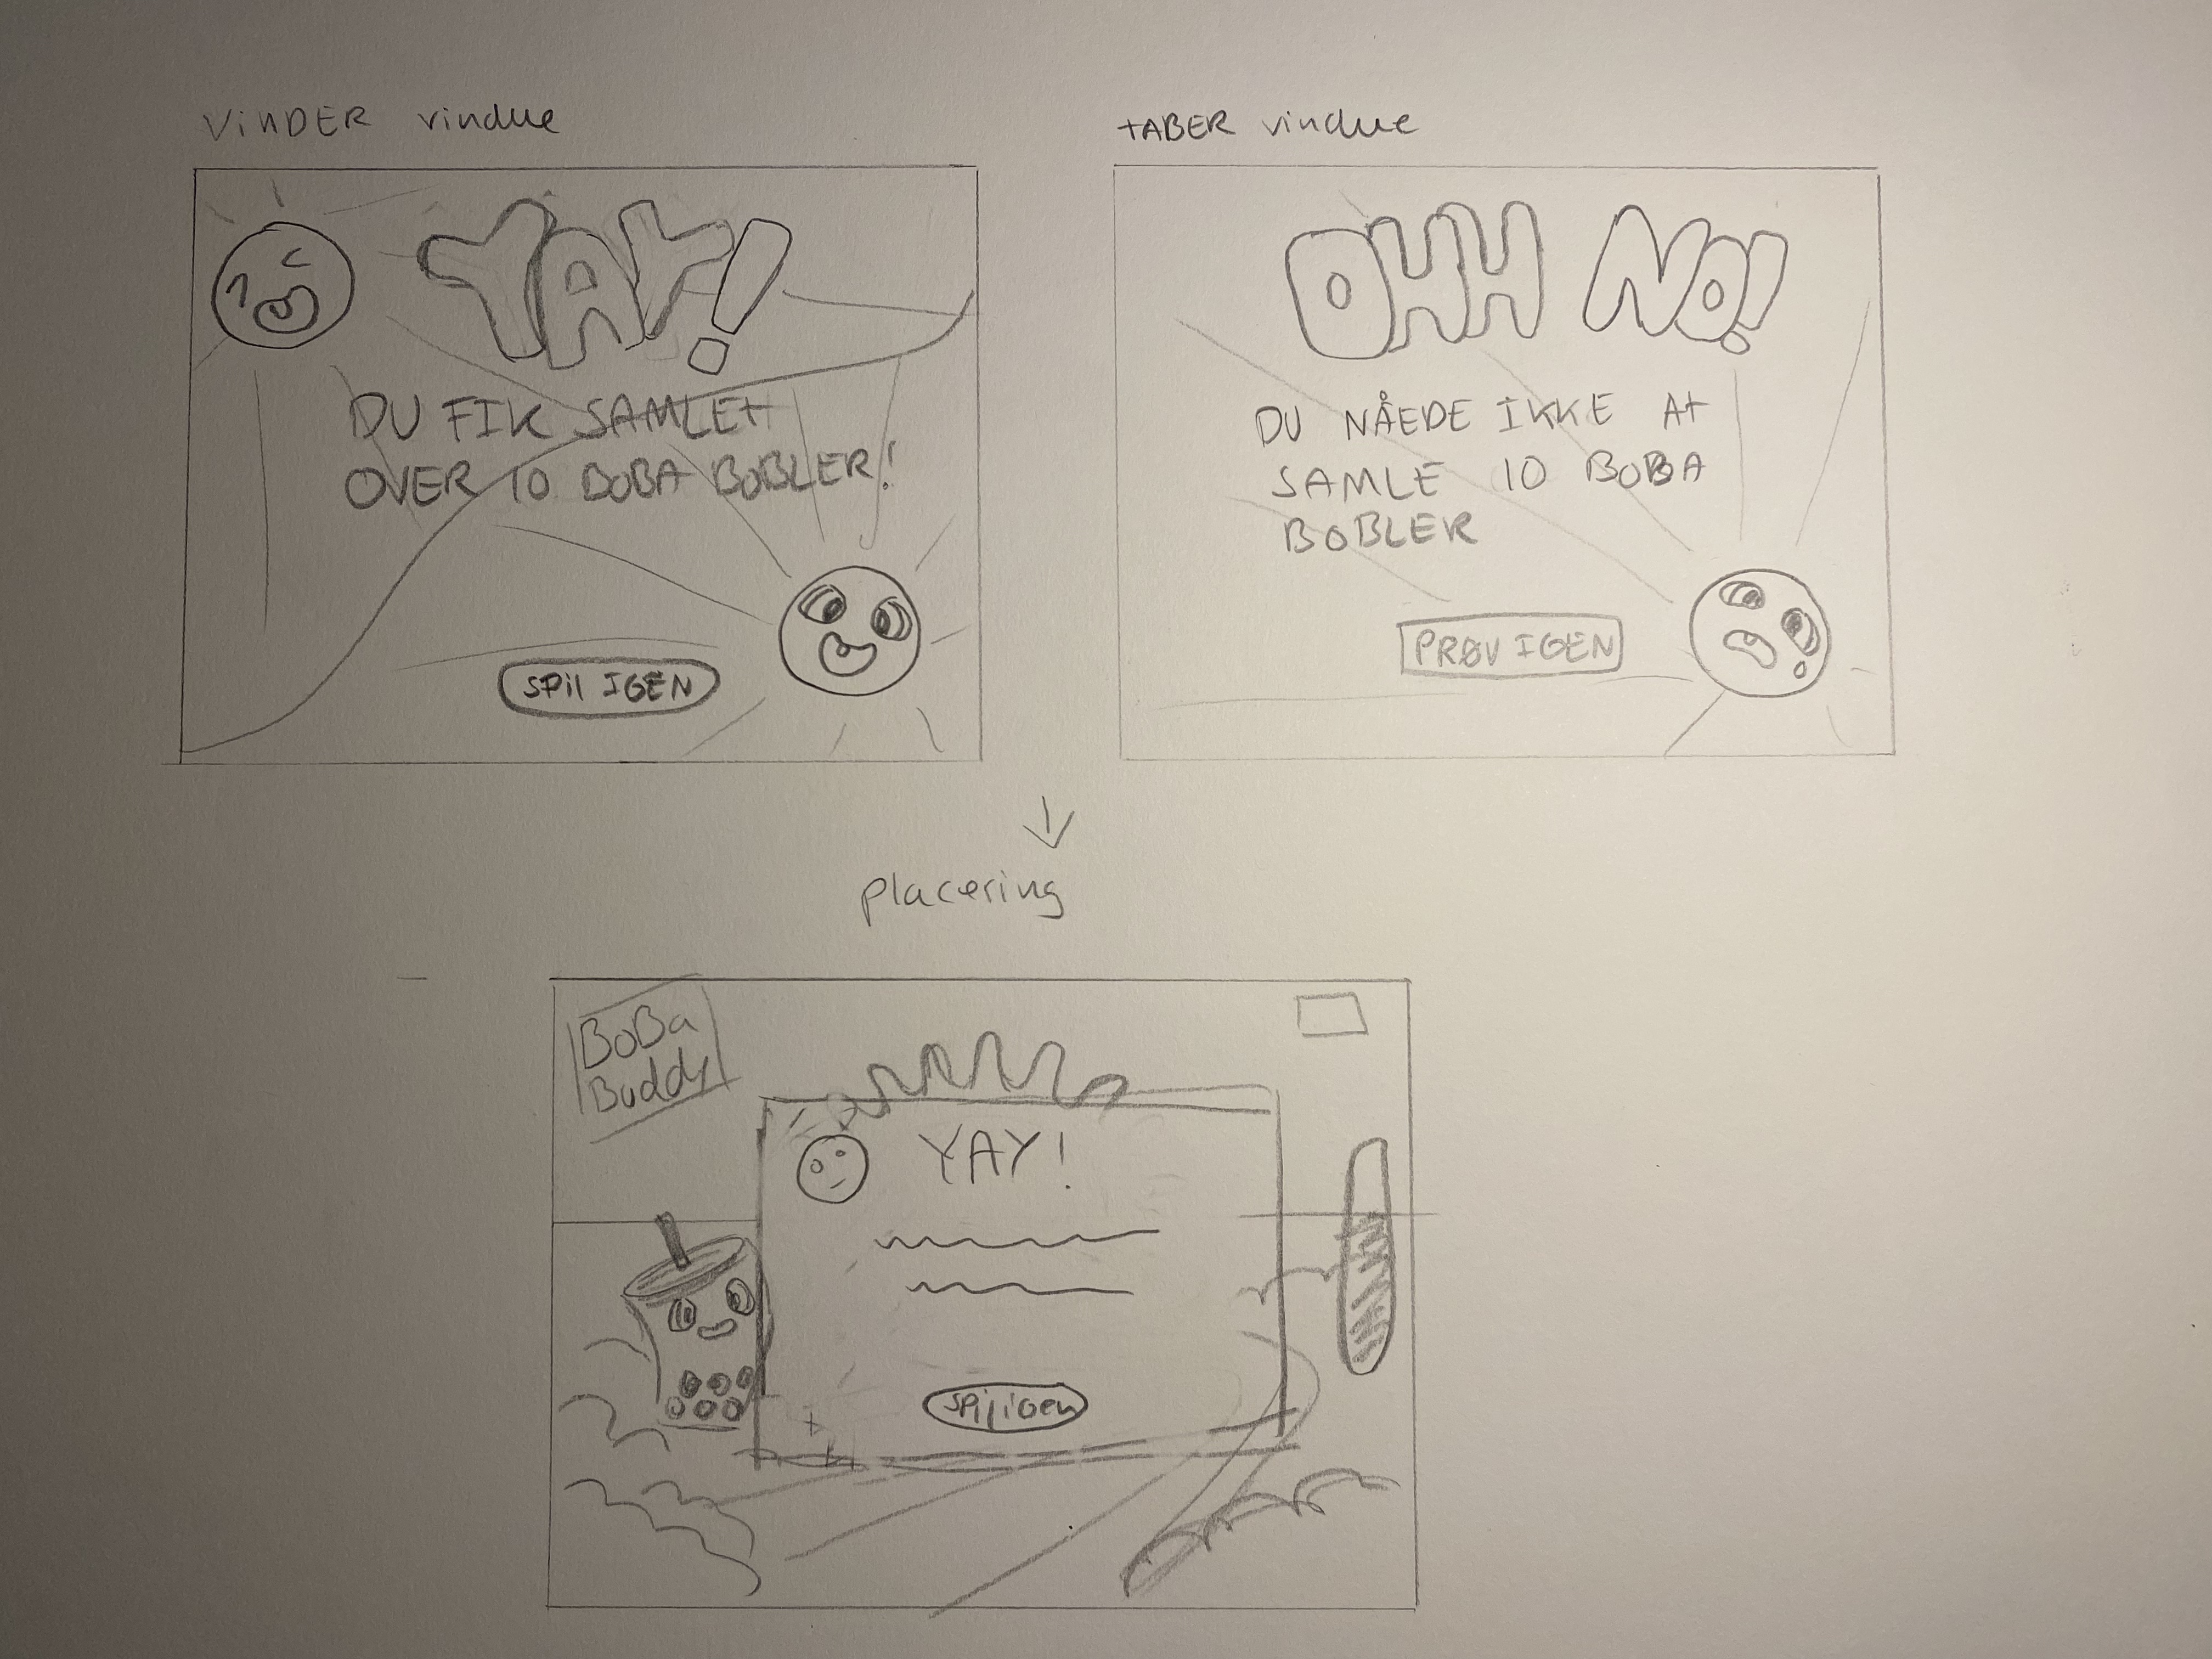 ViNDER vindue
YAY!
DU FIK SAMLET
OVER 10 BOBA BOBLER!
SPil IGEN
tABER vindue
OHH NO!
DU NÅEDE IKKE At
SAMLE 10 BOBA
BOBLER
PRØV IGEN
placering
BoBa
Buddy
YAY!
SPil iGen